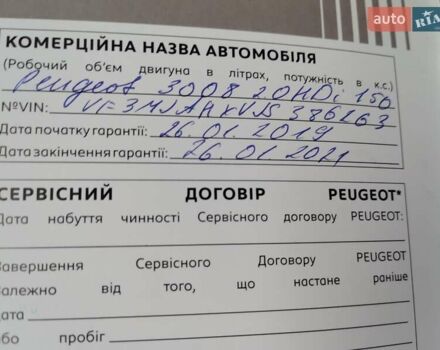 auto RIA
КОМЕРЦІЙНА НАЗВА АВТОМОБІЛЯ
(Робочий об'єм двигуна в літрах, потужність в к.с.)
Peugeot 3008 2.0HDi 150
№VIN: VF3MJAHXVJS386263
Дата початку гарантії: 26.01.2019
Дата закінчення гарантії: 26.01.2021
СЕРВІСНИЙ ДОГОВІР PEUGEOT*
Дата набуття чинності Сервісного договору PEUGEOT:
Завершення Сервісного Договору PEUGEOT
Залежно від того, що настане раніше
Дата
або пробіг